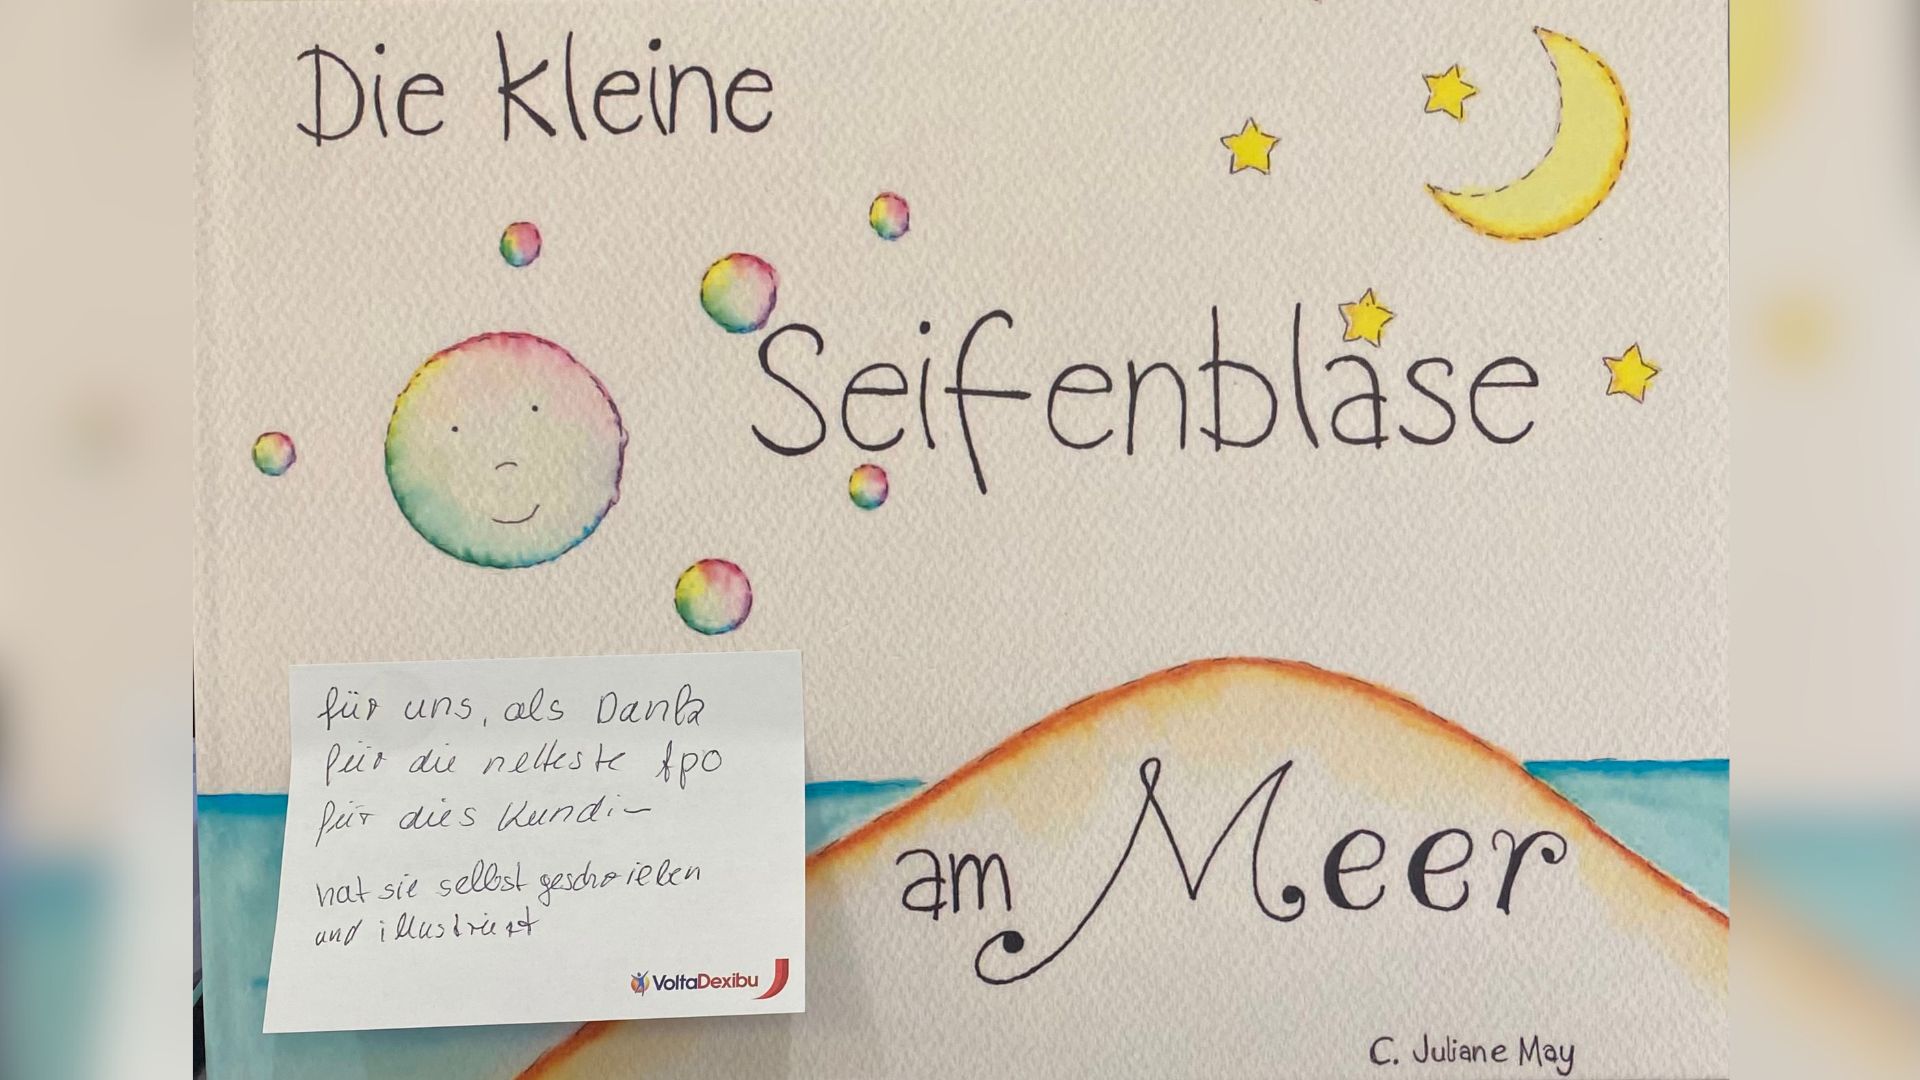 Die kleine
Seifenblase
am Meer
C. Juliane May
für uns, als Dank
für die netteste Apo
für dies Kundi~
hat sie selbst geschrieben
und illustriert
VoltaDexibu